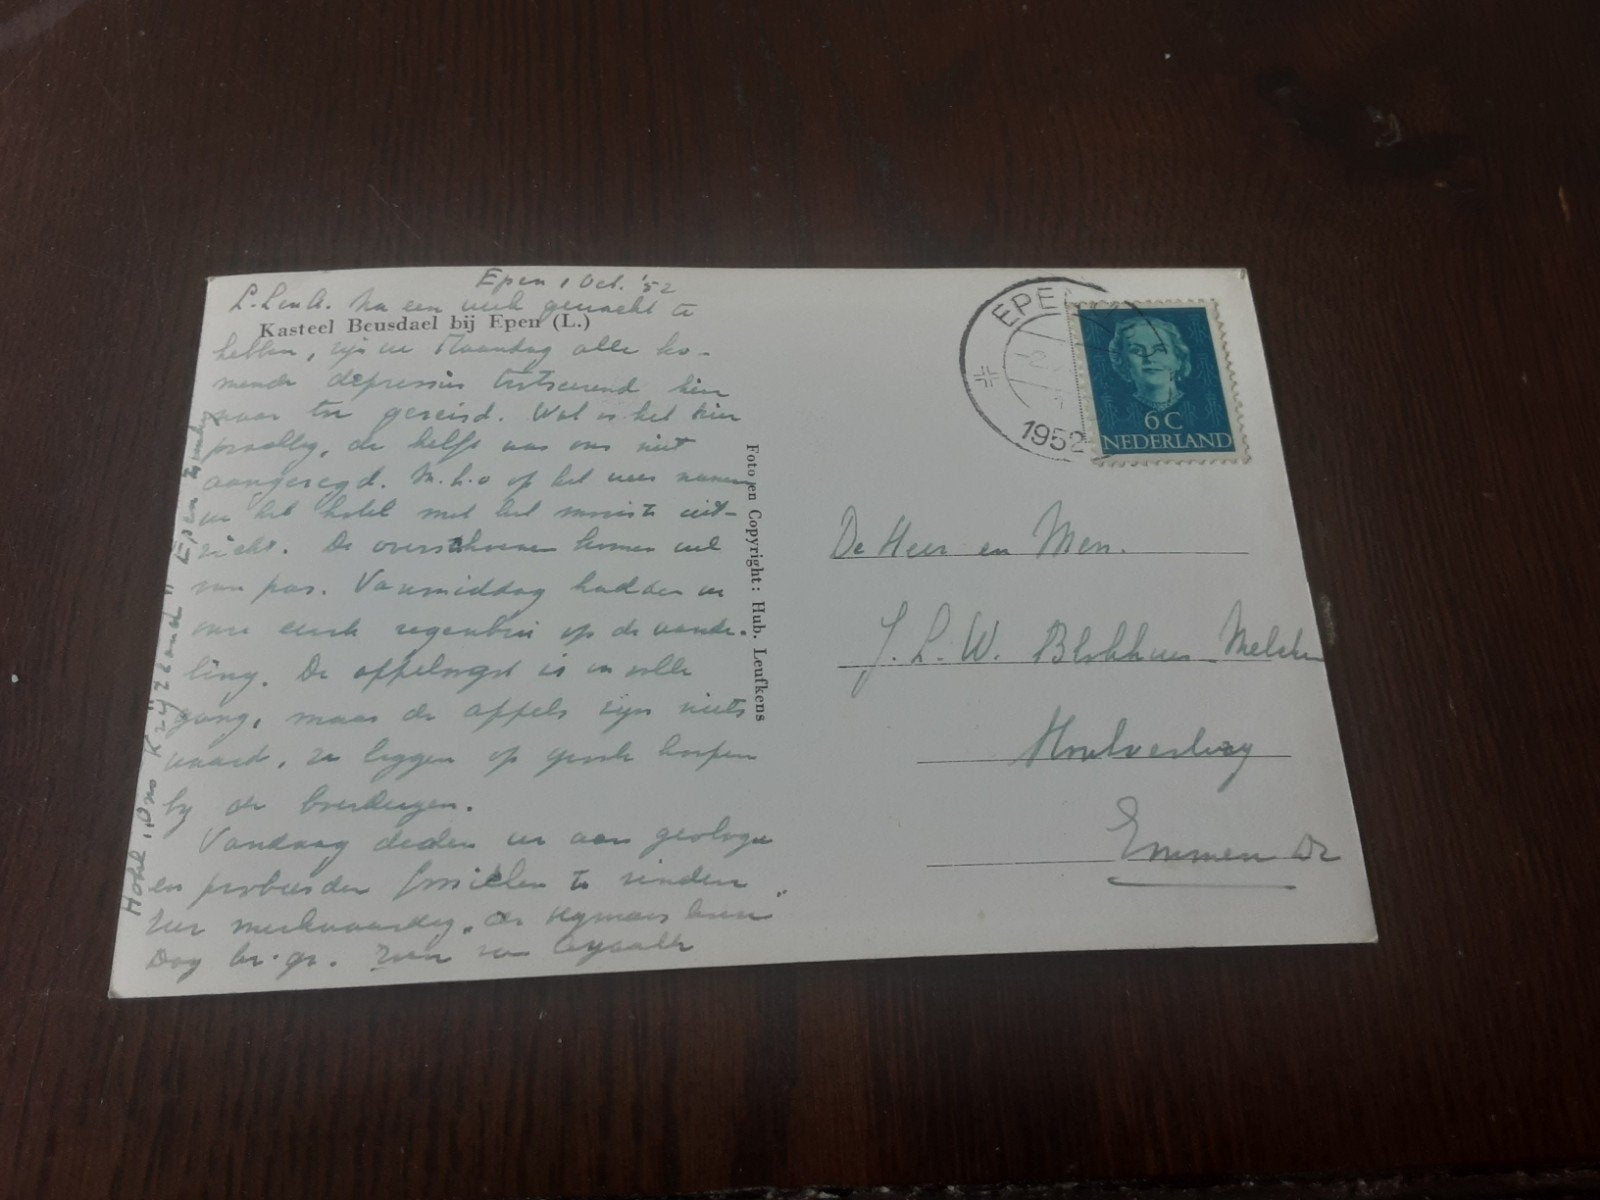 Epen 1 Oct. '52
L. L en A. Na een week gewacht te
Kasteel Beusdael bij Epen (L.)
hebben, zijn we Maandag alle ko-
mende depressies trotseerend hier
naar toe gereisd. Wat is het hier
prachtig, de helft was ons niet
aangezegd. M.h.o op het weer namen
we het hotel met het mooiste uit-
zicht. De overschoenen komen wel
van pas. Vanmiddag hadden we
onze eerste regenbui op de wande-
ling. De appeloogst is in volle
gang, maar de appels zijn niets
waard, ze liggen op groote hoopen
by de boerderyen.
Vandaag deden we aan geologie
en probeerden fossielen te vinden
zeer merkwaardig.
Dag br. gr.
Hotel "Ons Krijtland" Epen
Foto en Copyright: Hub. Leufkens
EPEN
1952
6C
NEDERLAND
De Heer en Mevr.
J. L. W. Blokhuis
Emmen Dr